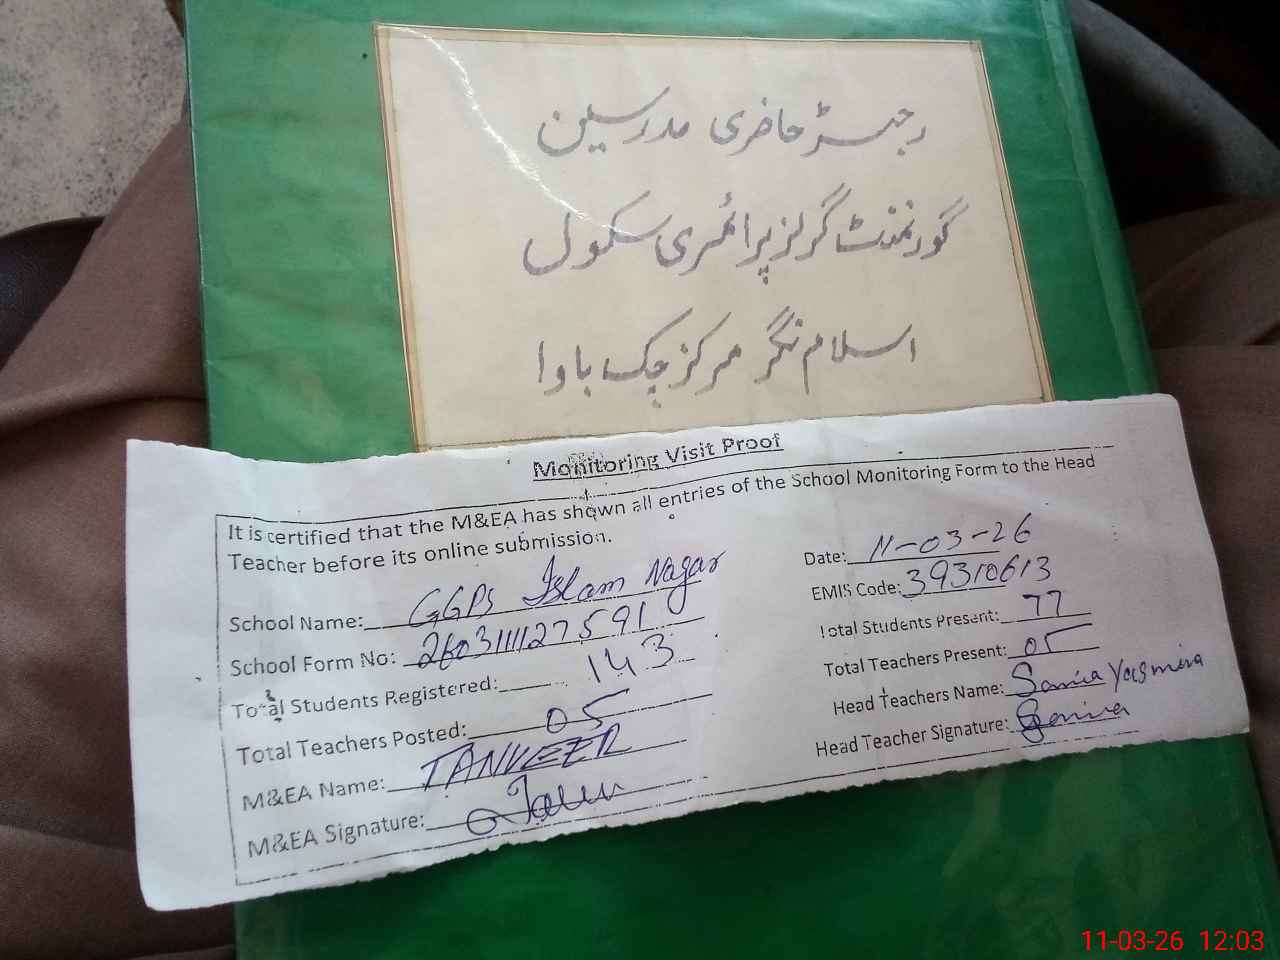 رجسڑ حاضری مدرسین
گورنمنٹ گرلز پرائمری سکول
اسلام نگر مرکز چک باوا
Monitoring Visit Proof
It is certified that the M&EA has shown all entries of the School Monitoring Form to the Head
Teacher before its online submission.
School Name: GGPS Islam Nagar
Date: 11-03-26
School Form No: 260311127591
EMIS Code: 39310613
Total Students Registered: 143
Total Students Present: 77
Total Teachers Posted: 05
Total Teachers Present: 05
M&EA Name: TANVEER
Head Teachers Name: Samia Yasmin
M&EA Signature:
Head Teacher Signature: Samina
11-03-26 12:03